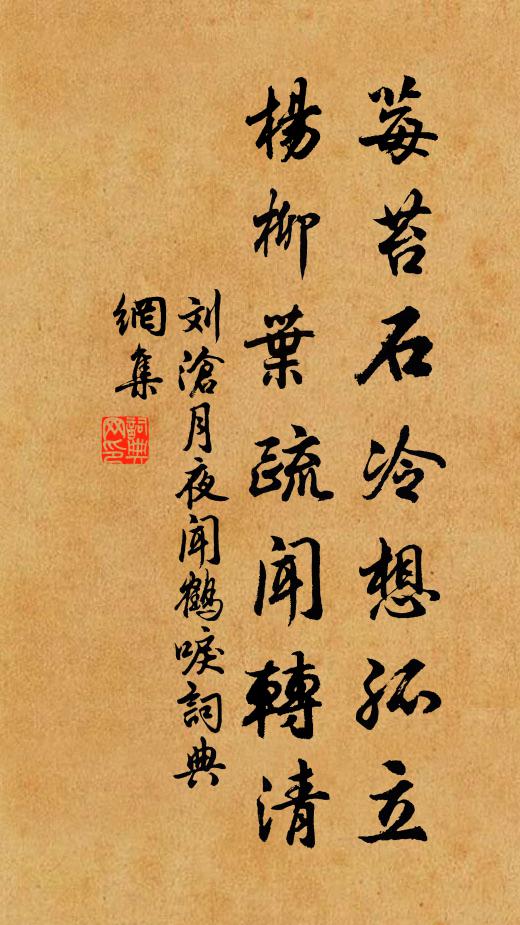 莓苔石冷想孤立
楊柳葉疏聞轉清
刘滄月夜闻鶴唳詞典
網集
詞典网印